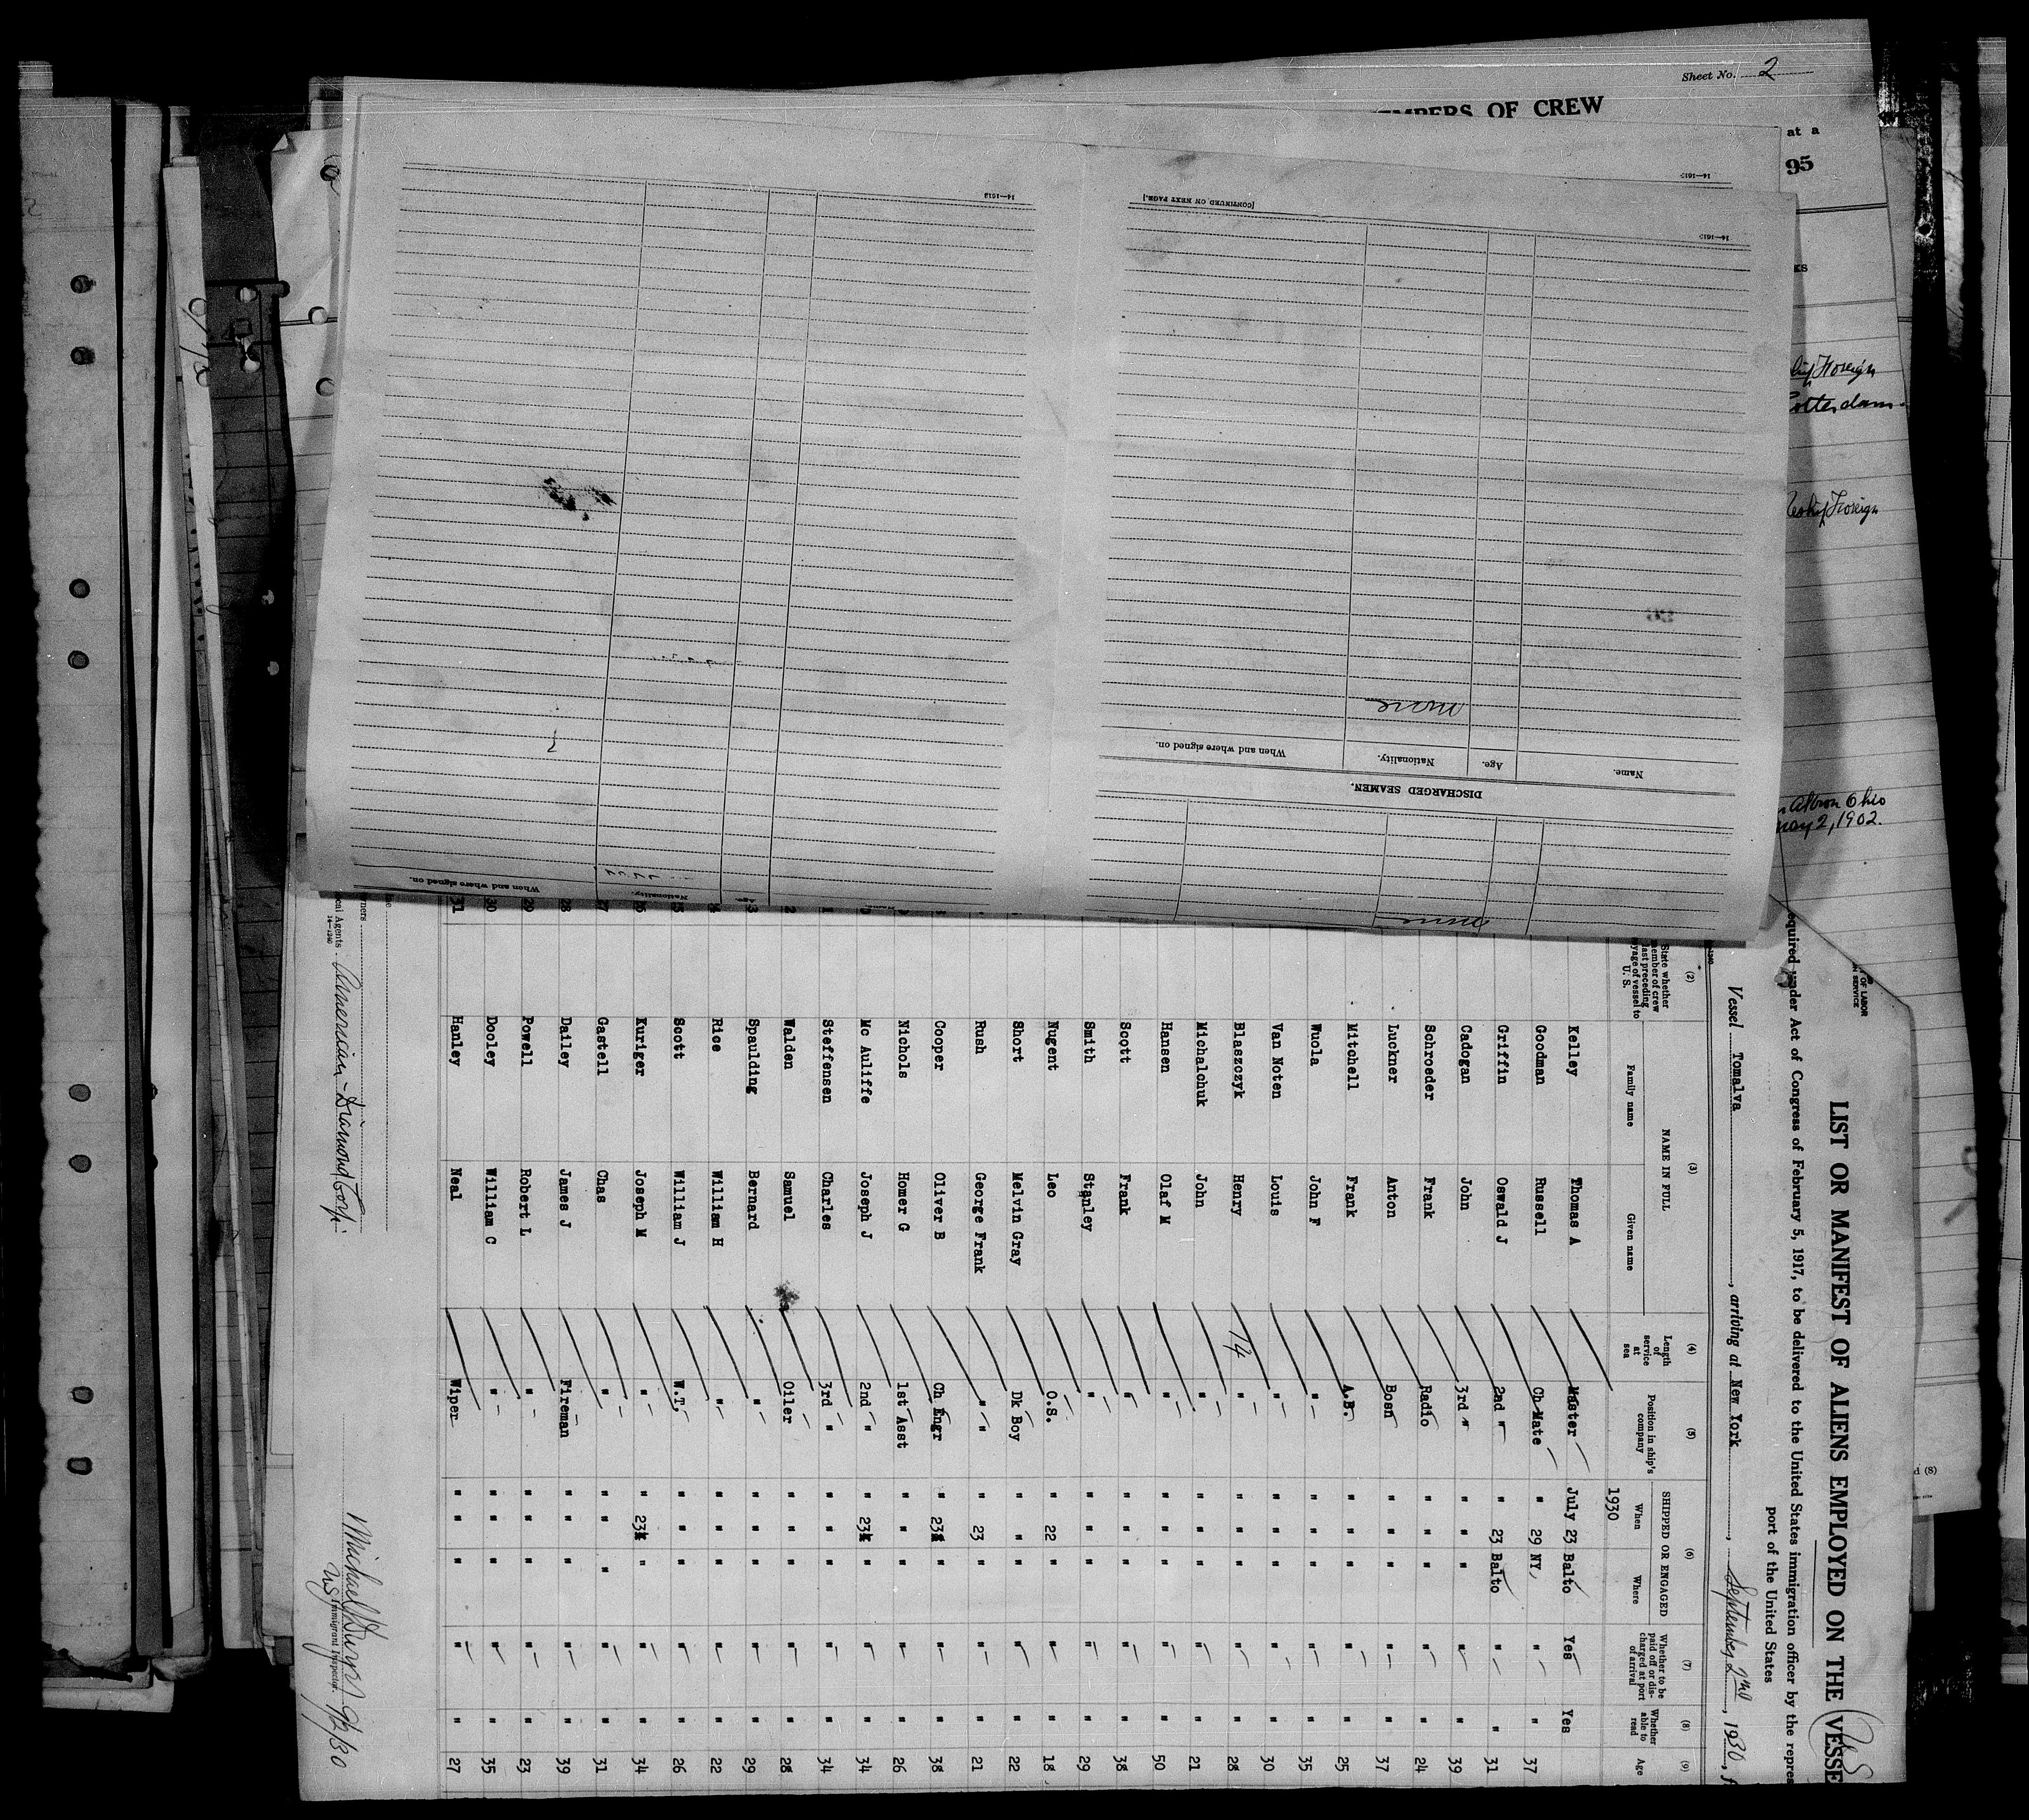 Sheet No. 2
OF CREW
at a
95
Foreign
Foreign
Akron Ohio
May 2, 1902.
14—1613
[CONTINUED ON NEXT PAGE.]
DISCHARGED SEAMEN.
Name. Age. Nationality. When and where signed on.
none
Name. Age. Nationality. When and where signed on.
OF LABOR
SERVICE
LIST OR MANIFEST OF ALIENS EMPLOYED ON THE VESSE
required under Act of Congress of February 5, 1917, to be delivered to the United States immigration officer by the repres
port of the United States
Vessel Tomalva, arriving at New York, September 2nd, 1930, f
(2) (3) (4) (5) (6) (7) (8) (9)
State whether member of crew last preceding voyage of vessel to U. S.
NAME IN FULL
Family name Given name
Length of service at sea
Position in ship's company
SHIPPED OR ENGAGED
When Where
Whether to be paid off or discharged at port of arrival
Whether able to read
Age
1930
Kelley Thomas A Master July 23 Balto Yes Yes
Goodman Russell Ch Mate " 29 NY, " " 37
Griffin Oswald J 2nd " " 23 Balto " " 31
Cadogan John 3rd " " " " " " 39
Schroeder Frank Radio " " " " " 24
Luckner Anton Bosn " " " " " 37
Mitchell Frank A.B. " " " " " 25
Wuola John F " " " " " " 35
Van Noten Louis " " " " " " 30
Blaszczyk Henry 14 " " " " " " 28
Michalchuk John " " " " " " 21
Hansen Olaf M " " " " " " 50
Scott Frank " " " " " " 38
Smith Stanley " " " " " " 29
Nugent Leo O.S. " 22 " " " 18
Short Melvin Gray Dk Boy " " " " " 22
Rush George Frank " " 23 " " " 21
Cooper Oliver B Ch Engr " 23 " " " 38
Nichols Homer G 1st Asst " " " " " 26
Mc Auliffe Joseph J 2nd " " 23 " " " 34
Steffensen Charles 3rd " " " " " " 34
Walden Samuel Oiler " " " " " 28
Spaulding Bernard " " " " " " 29
Rice William H " " " " " " 22
25 Scott William J W.T. " " " " " 26
26 Kuriger Joseph M " " 23 " " " 34
27 Gastell Chas " " " " " " 31
28 Dailey James J Fireman " " " " " 39
29 Powell Robert L " " " " " " 23
30 Dooley William C " " " " " " 35
31 Hanley Neal Wiper " " " " " 27
Local Agents American-Diamond Corp.
14—1240
US Immigrant Inspector. 9/2/30